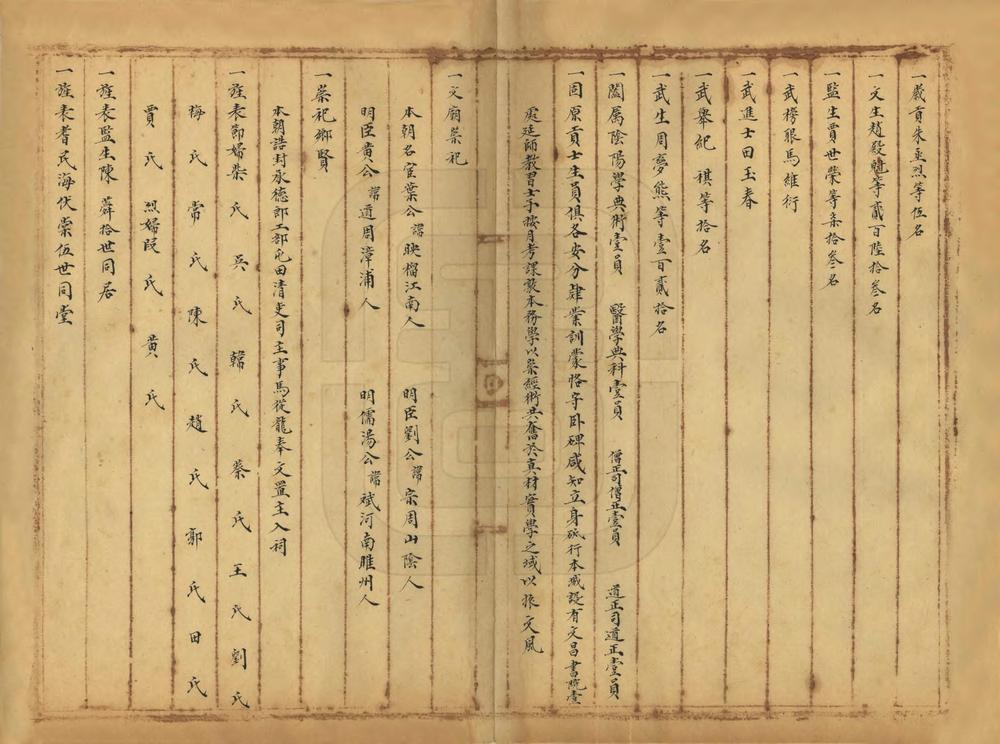 一歲貢朱丕烈等伍名
一文生趙殿魁等貳百陸拾叁名
一監生賈世榮等柒拾叁名
一武榜眼馬維衍
一武進士田玉春
一武舉紀祺等拾名
一武生周夢熊等壹百貳拾名
一闔属陰陽學典術壹員 醫學典科壹員 僧正司僧正壹員 道正司道正壹員
一固原貢士生員俱各安分肄業訓蒙恪守卧碑咸知立身砥行本城設有文昌書院壹
處延師教習士子按月考課敦本務學以崇經術共奮於真材實學之域以振文風
一文廟崇祀
本朝名宦葉公諱映榴江南人 明臣劉公諱宗周山陰人
明臣黄公諱道周漳浦人 明儒湯公諱斌河南睢州人
一崇祀鄉賢
本朝誥封承德郎工部屯田清吏司主事馬從龍奉文置主入祠
一旌表節婦柴氏 吳氏 韓氏 蔡氏 王氏 劉氏
梅氏 常氏 陳氏 趙氏 郭氏 田氏
賈氏 烈婦段氏 黄氏
一旌表監生陳蕣拾世同居
一旌表耆民海伏崇伍世同堂